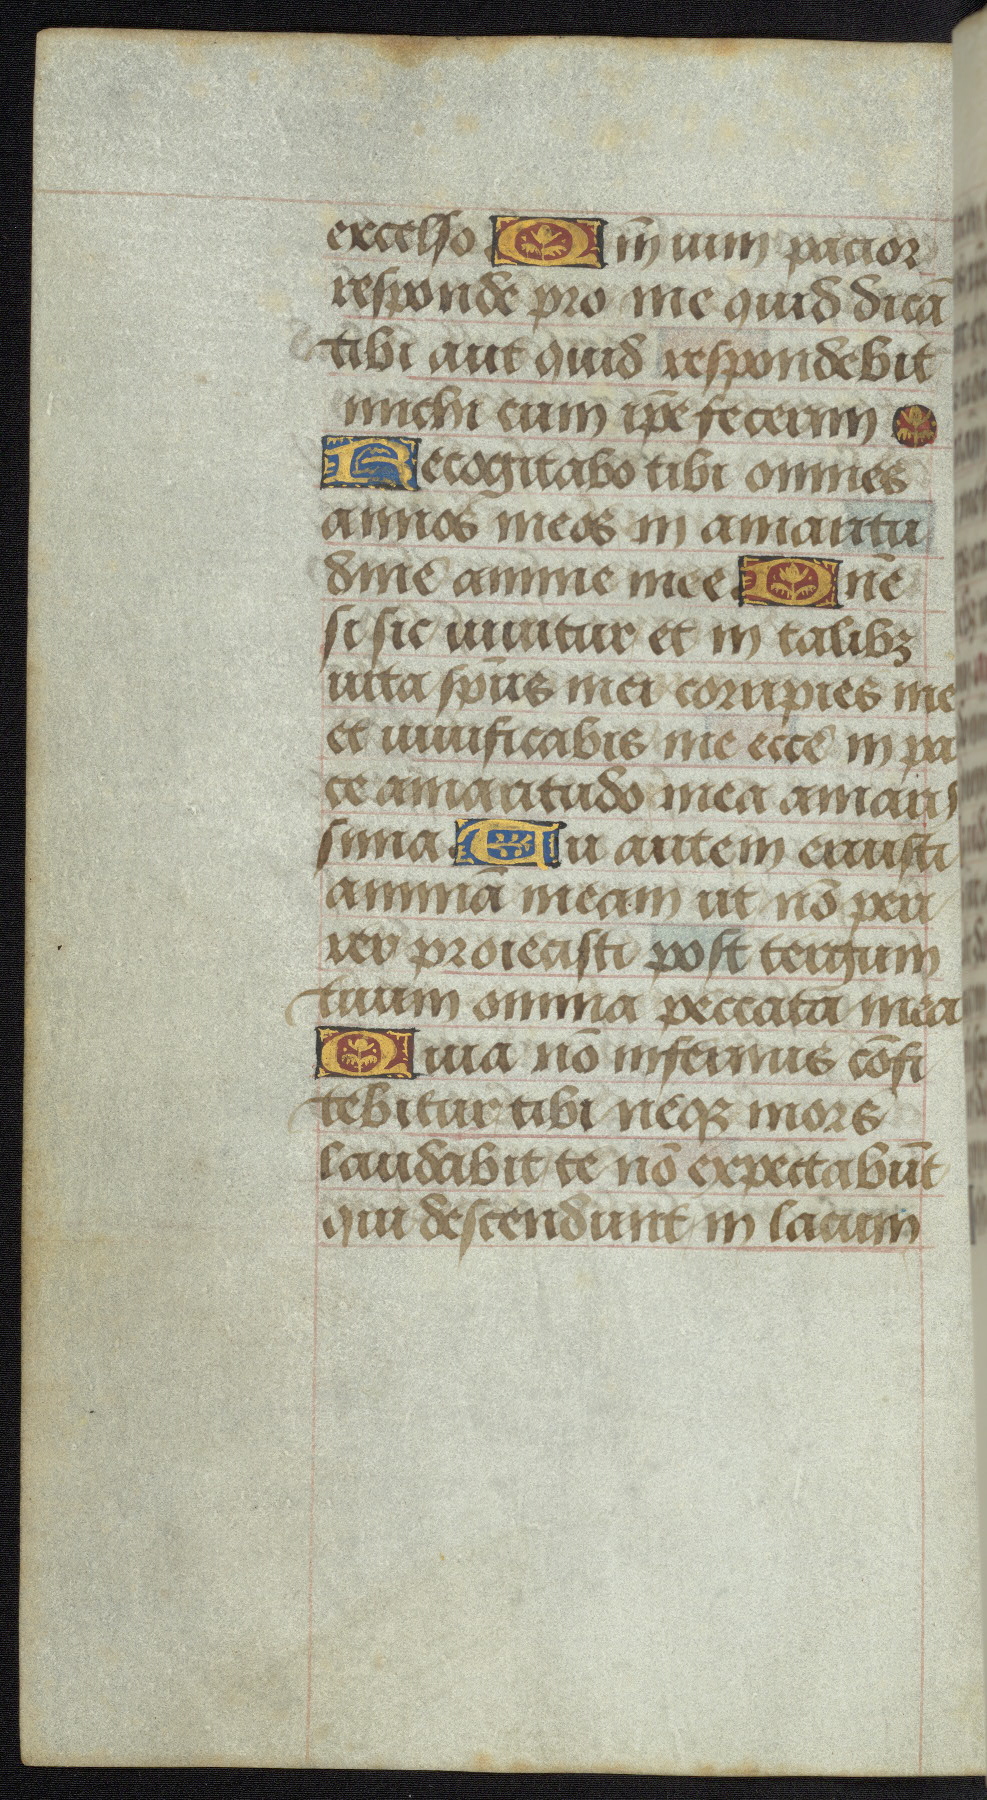 excelso Dn̄ uim pacior
responde pro me quid dicā
tibi aut quid respondebit
michi cum ip̄e fecerim
Recogitabo tibi omnes
annos meos in amaritu
dine anime mee Dn̄e
si sic uiuitur et in talibꝫ
uita sp̄us mei corripies me
et uiuificabis me ecce in pa
ce amaritudo mea amaris
sima Tu autem eruisti
animā meam ut nō peri
rer proiecisti post tergum
tuum omnia peccata mea
Quia nō infernus cōfi
tebitur tibi neqꝫ mors
laudabit te nō expectabūt
qui descendunt in lacum